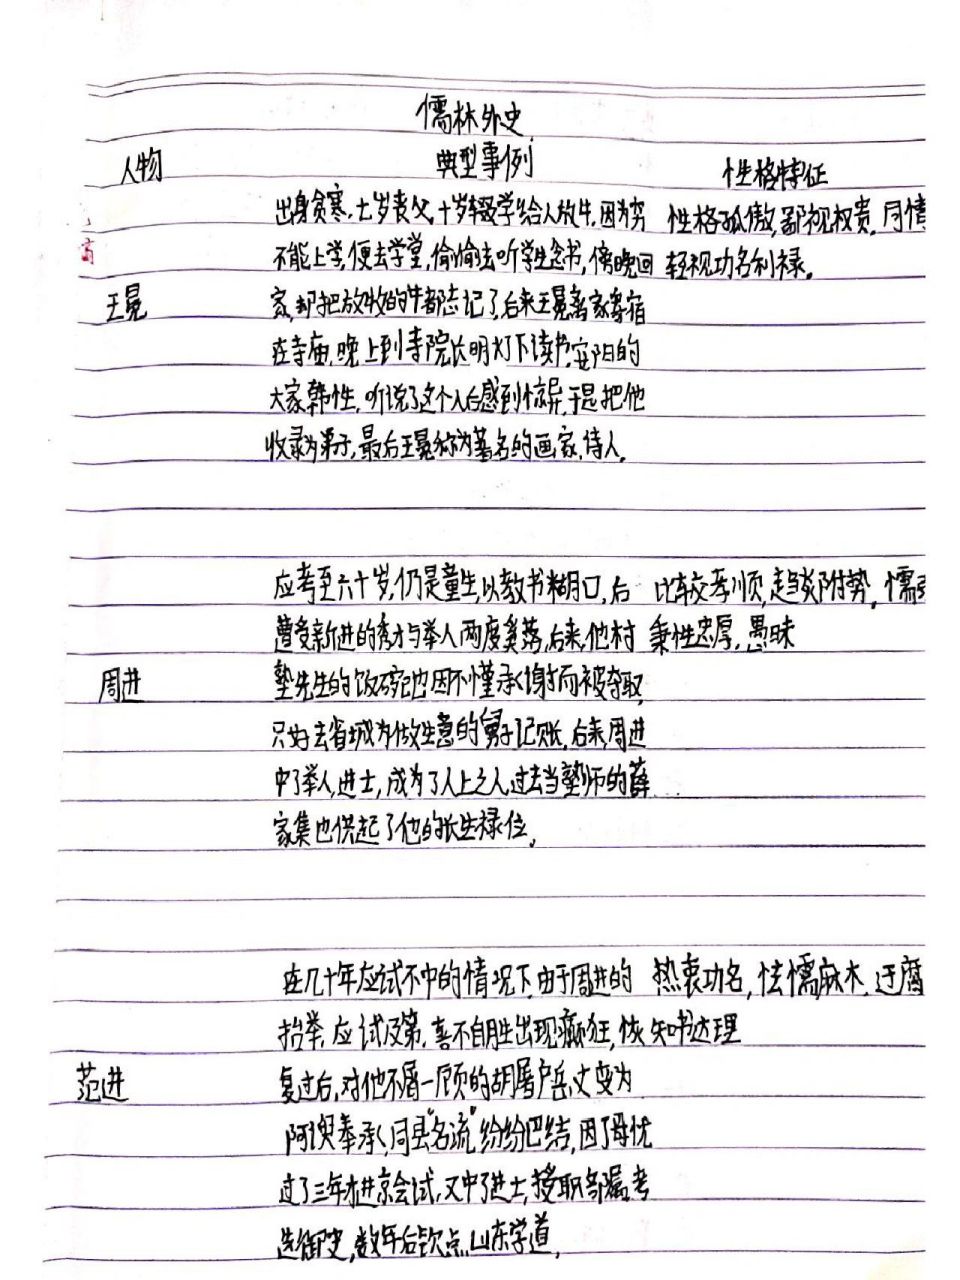 儒林外史
人物 典型事例 性格特征
出身贫寒,七岁丧父,十岁辍学给人放牛,因为穷 性格孤傲,鄙视权贵,同情
不能上学,便去学堂,偷偷去听学生念书,傍晚回 轻视功名利禄。
高
王冕 家,却把放牧的牛都忘记了,后来王冕离家寄宿
在寺庙,晚上到寺院长明灯下读书,安阳的
大家韩性,听说了这个人后感到惊异,于是把他
收录为弟子,最后王冕称为著名的画家,诗人。
应考至六十岁,仍是童生,以教书糊口,后 比较孝顺,趋炎附势,懦弱
遭受新进的秀才与举人两度奚落,后来,他村 秉性忠厚,愚昧
周进 塾先生的饭碗也因不懂承谢而被夺取,
只好去省城为做生意的舅子记账,后来,周进
中了举人,进士,成为了人上之人,过去当塾师的薛
家集也供起了他的长生禄位。
在几十年应试不中的情况下,由于周进的 热衷功名,怯懦麻木,迂腐
抬举,应试及第,喜不自胜出现癫狂,恢 知书达理
范进 复过后,对他不屑一顾的胡屠户岳丈变为
阿谀奉承,同县"名流"纷纷巴结,因丁母忧
过了三年才进京会试,又中了进士,授职部属,考
选御史,数年后钦点山东学道,